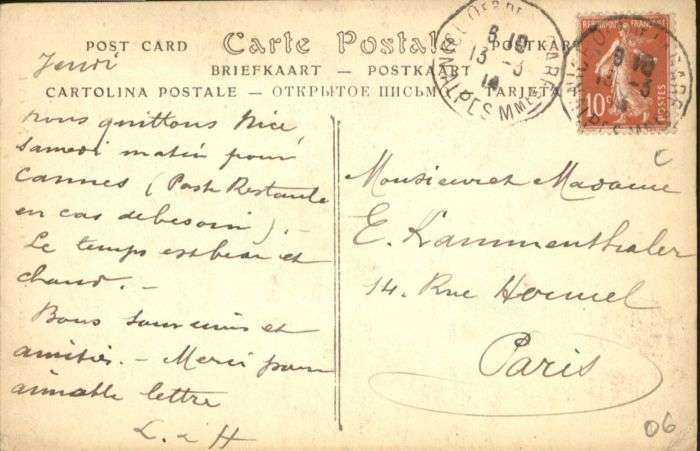 POST CARD Carte Postale POSTKARTE
BRIEFKAART — POSTKAART
CARTOLINA POSTALE — ОТКРЫТОЕ ПИСЬМО TARJETA
Jeudi
Nous quittons Nice
samedi matin pour
Cannes (Poste Restante
en cas de besoin). -
Le temps est beau et
chaud. -
Bons souvenirs et
amitiés. - Merci pour
aimable lettre
L. et H
NICE
ALPES MMES
13 - 3
14
REPUBLIQUE FRANCAISE
10c
POSTES
Monsieur et Madame
E. Kammenthaler
14. Rue Houel
Paris
06